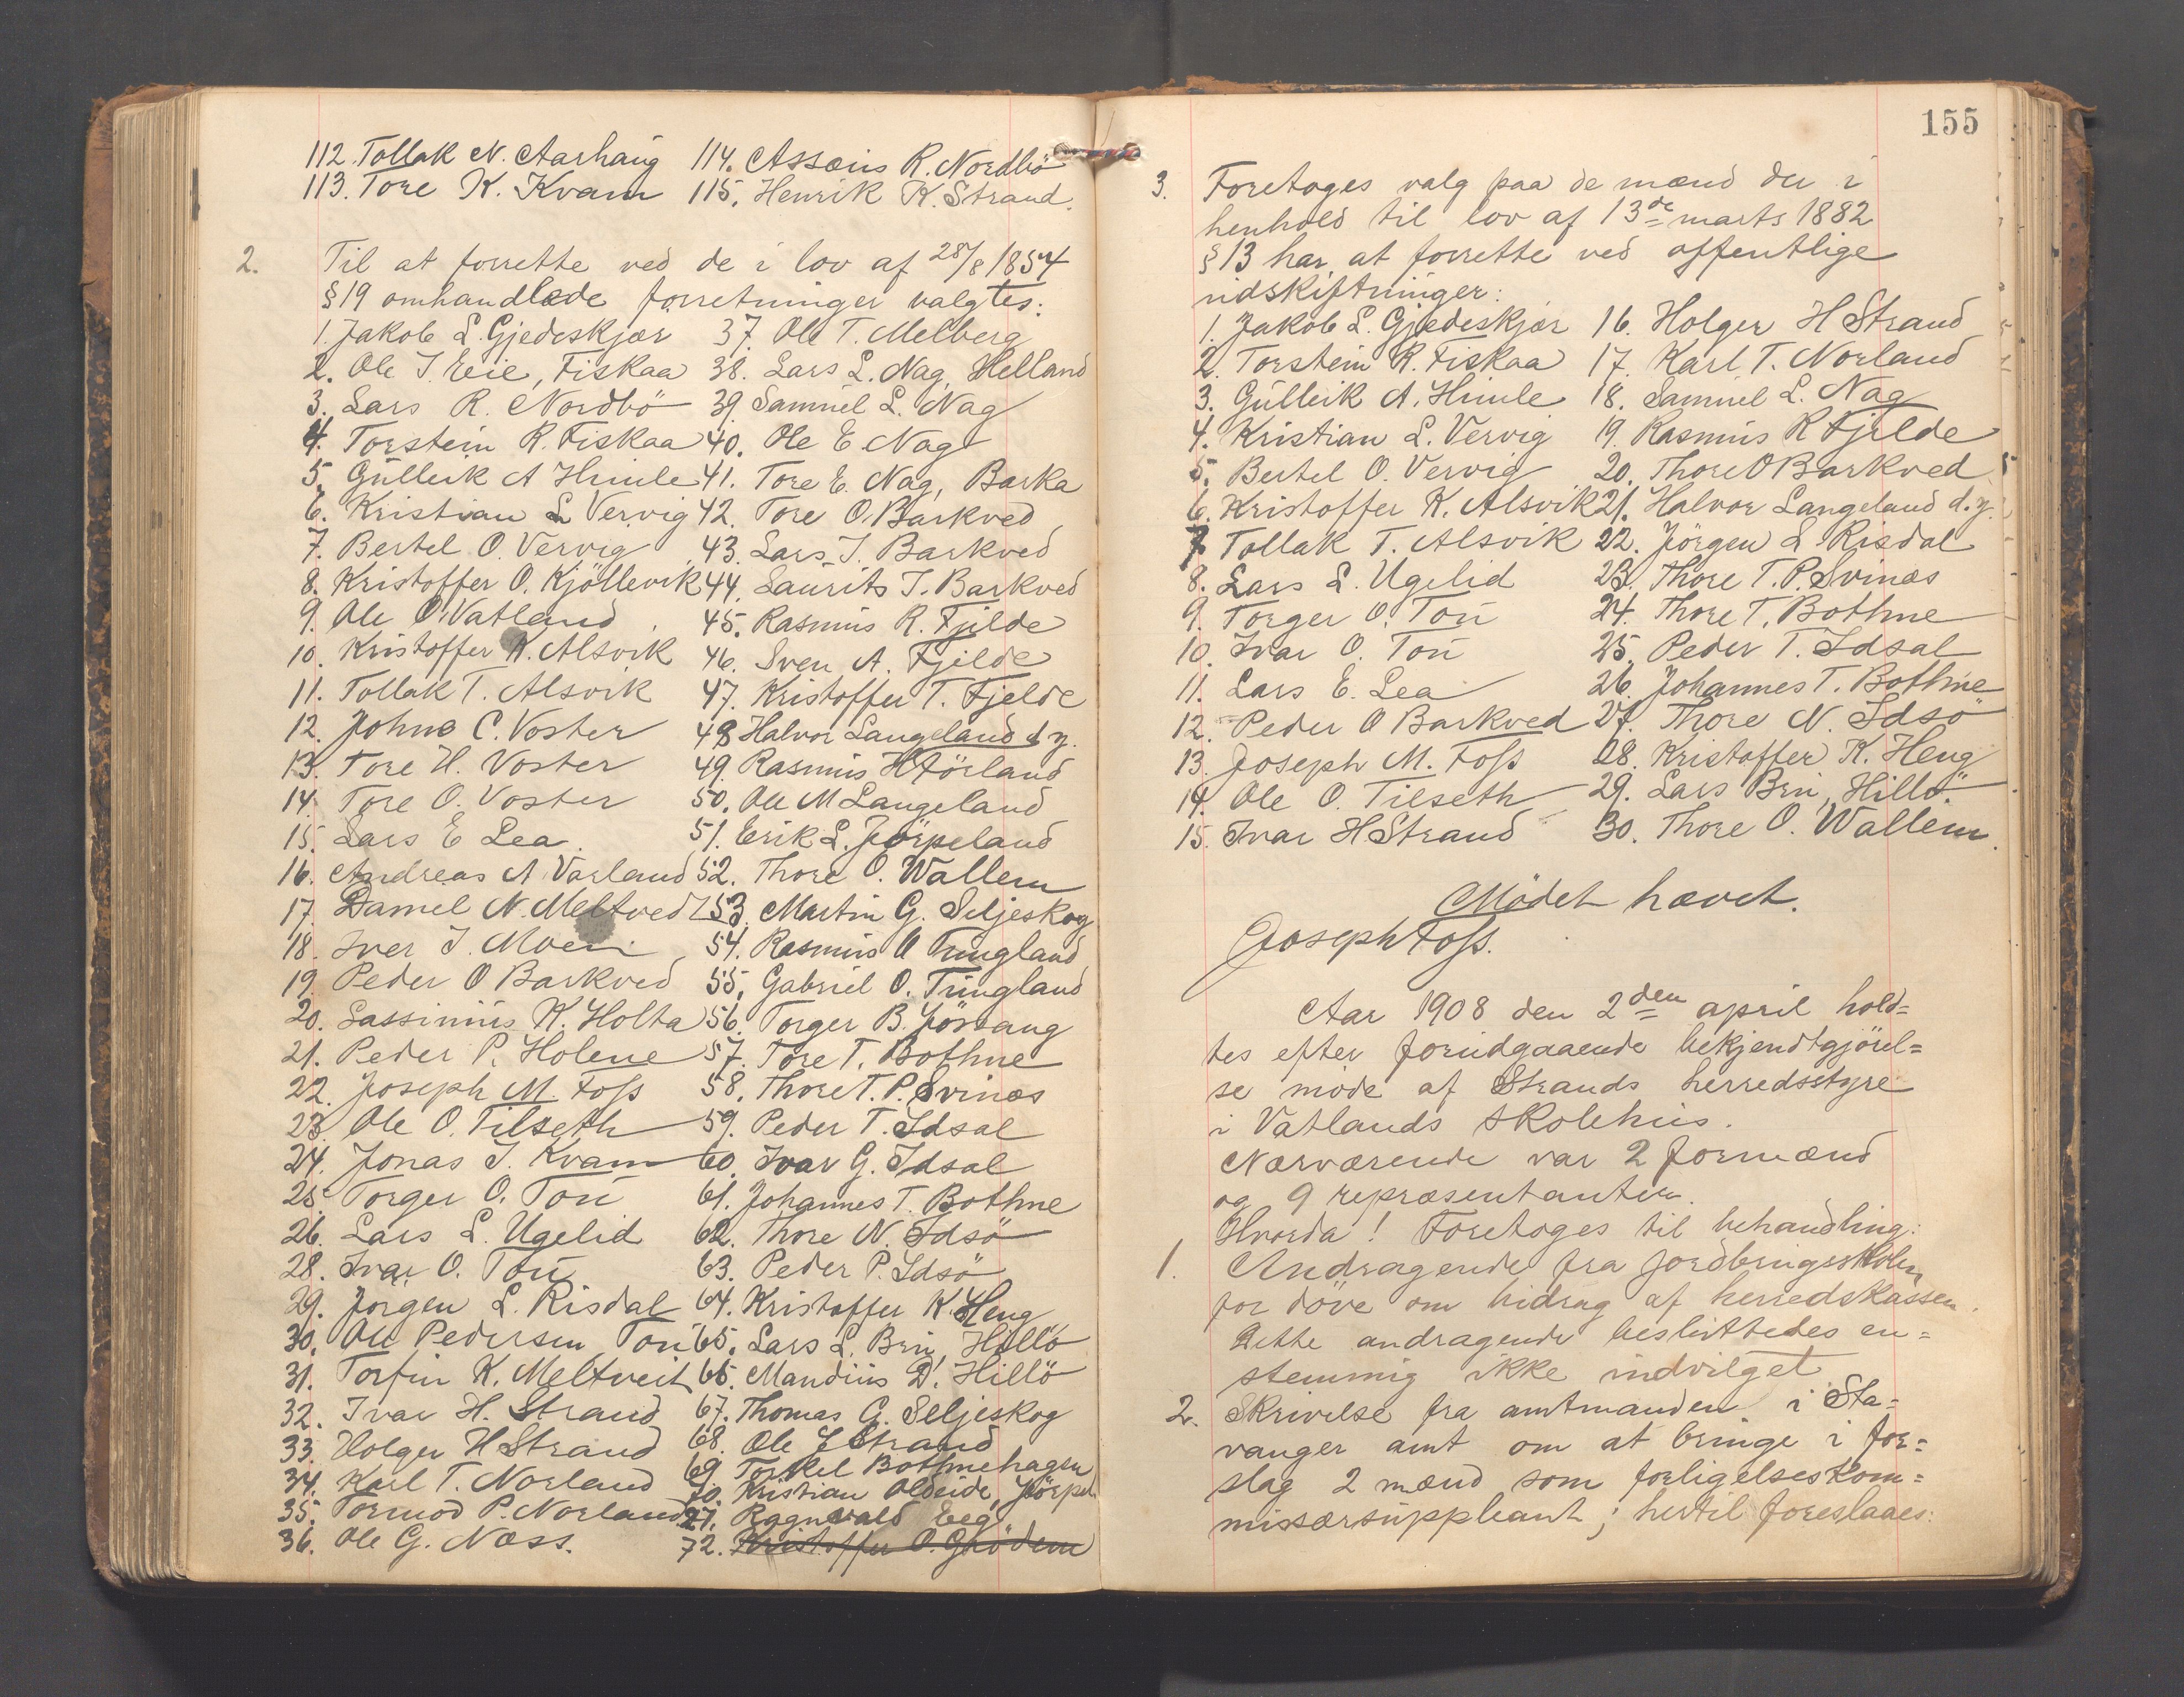 112. Tollak N. Aarhaug
113. Tore K. Kvam
114. Assæus R. Nordbö
115. Henrik K. Strand.
2. Til at forrette ved de i lov af 28/8 1854
§ 19 omhandlede forretninger valgtes:
1. Jakob L. Gjedeskjær
2. Ole I. Eie, Fiskaa
3. Lars R. Nordbö
4. Torstein R. Fiskaa
5. Gulleik A Himle
6. Kristian L Vervig
7. Bertel O. Vervig
8. Kristoffer O. Kjöllevik
9. Ole O. Vatland
10. Kristoffer K. Alsvik
11. Tollak T. Alsvik
12. Johns C. Voster
13. Tore H. Voster
14. Tore O. Voster
15. Lars E Lea
16. Andreas A Varland
17. Daniel N. Meltved
18. Iver I. Moen
19. Peder O Barkved
20. Sassinius K. Holta
21. Peder P. Holene
22. Joseph M. Foss
23. Ole O. Tilseth
24. Jonas J. Kvam
25. Torger O. Tou
26. Lars L. Ugelid
28. Ivar O. Tou
29. Jörgen L. Risdal
30. Ole Pedersen Tou
31. Torfin K. Meltveit
32. Ivar H. Strand
33. Holger H Strand
34. Karl T. Norland
35. Tormod P. Norland
36. Ole G. Næss.
37. Ole T. Melberg
38. Lars L. Nag, Helland
39. Samuel L. Nag
40. Ole E. Nag
41. Tore E. Nag, Barka
42. Tore O. Barkved
43. Lars I. Barkved
44. Laurits T. Barkved
45. Rasmus R. Fjelde
46. Sven A. Fjelde
47. Kristoffer T. Fjelde
48 Halvor Langeland d.y.
49. Rasmus H Förland
50. Ole M Langeland
51. Erik L. Jörpeland
52. Thore O. Wallem
53. Martin G. Seljeskog
54. Rasmus O Tungland
55. Gabriel O. Tungland
56. Torger B. Jössang
57. Tore T. Bothne
58. Thore T. P. Svines
59. Peder T. Idsal
60. Ivar G. Idsal
61. Johannes T. Bothne
62. Thore N. Idsö
63. Peder P. Idsö
64. Kristoffer K. Heng
65. Lars L. Bru, Hillö
66. Mandius D. Hillö
67. Thomas G. Seljeskog
68. Ole J Strand
69. Torkel Bothnehagen
70. Kristian Aldeide, Jörpel
71. Ragnvald Eeg
72. Kristoffer O. Grödem
155
3. Foretoges valg paa de mænd der i
henhold til lov af 13de marts 1882
§ 13 har at forrette ved offentlige
udskiftninger:
1. Jakob L. Gjedeskjær
2. Torstein R. Fiskaa
3. Gulleik A. Himle
4. Kristian L. Vervig
5. Bertel O. Vervig
6. Kristoffer K. Alsvik
7 Tollak T. Alsvik
8. Lars L. Ugelid
9. Torger O. Tou
10. Ivar O. Tou
11. Lars E. Lea
12. Peder O Barkved
13. Joseph M. Foss
14. Ole O. Tilseth
15. Ivar H Strand
16. Holger H Strand
17. Karl T. Norland
18. Samuel L. Nag
19. Rasmus R Fjelde
20. Thore O Barkved
21. Halvor Langeland d.y.
22. Jörgen L Risdal
23. Thore T. P. Svines
24. Thore T. Bothne
25. Peder T. Idsal
26. Johannes T. Bothne
27. Thore N. Idsö
28. Kristoffer K. Heng
29. Lars Bru, Hillö.
30. Thore O. Wallem.
Mödet hævet.
Joseph Foss.
Aar 1908 den 2den april hold=
tes efter forudgaaende bekjendtgjörel=
se möde af Strands herredsstyre
i Vatlands skolehus.
Nærværende var 2 formænd
og 9 repræsentanter.
Hvorda! Foretoges til behandling:
1. Andragende fra fordbringsskolen
for döve om bidrag af herredskassen.
Dette andragende besluttedes en=
stemmig ikke indvilget
2. Skrivelse fra amtmanden i Sta=
vanger amt om at bringe i for=
slag 2 mænd som forligelseskom=
missærsuppleant; hertil foreslaaes: